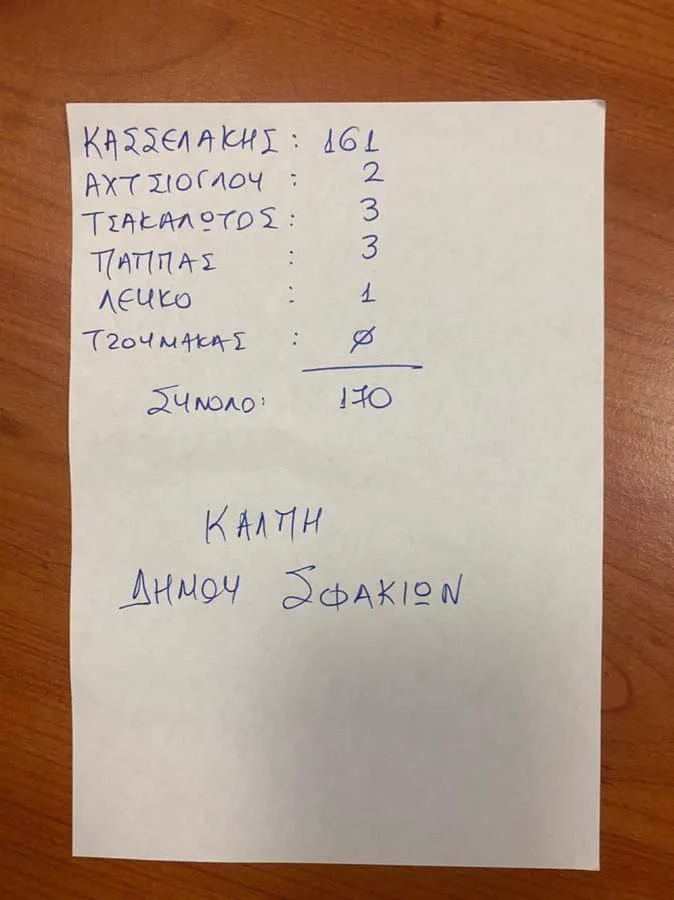 ΚΑΣΣΕΛΑΚΗΣ: 161
ΑΧΤΣΙΟΓΛΟΥ : 2
ΤΣΑΚΑΛΩΤΟΣ: 3
ΠΑΠΠΑΣ : 3
ΛΕΥΚΟ : 1
ΤΖΟΥΜΑΚΑΣ : Ø
ΣΥΝΟΛΟ: 170
ΚΑΛΠΗ
ΔΗΜΟΥ ΣΦΑΚΙΩΝ